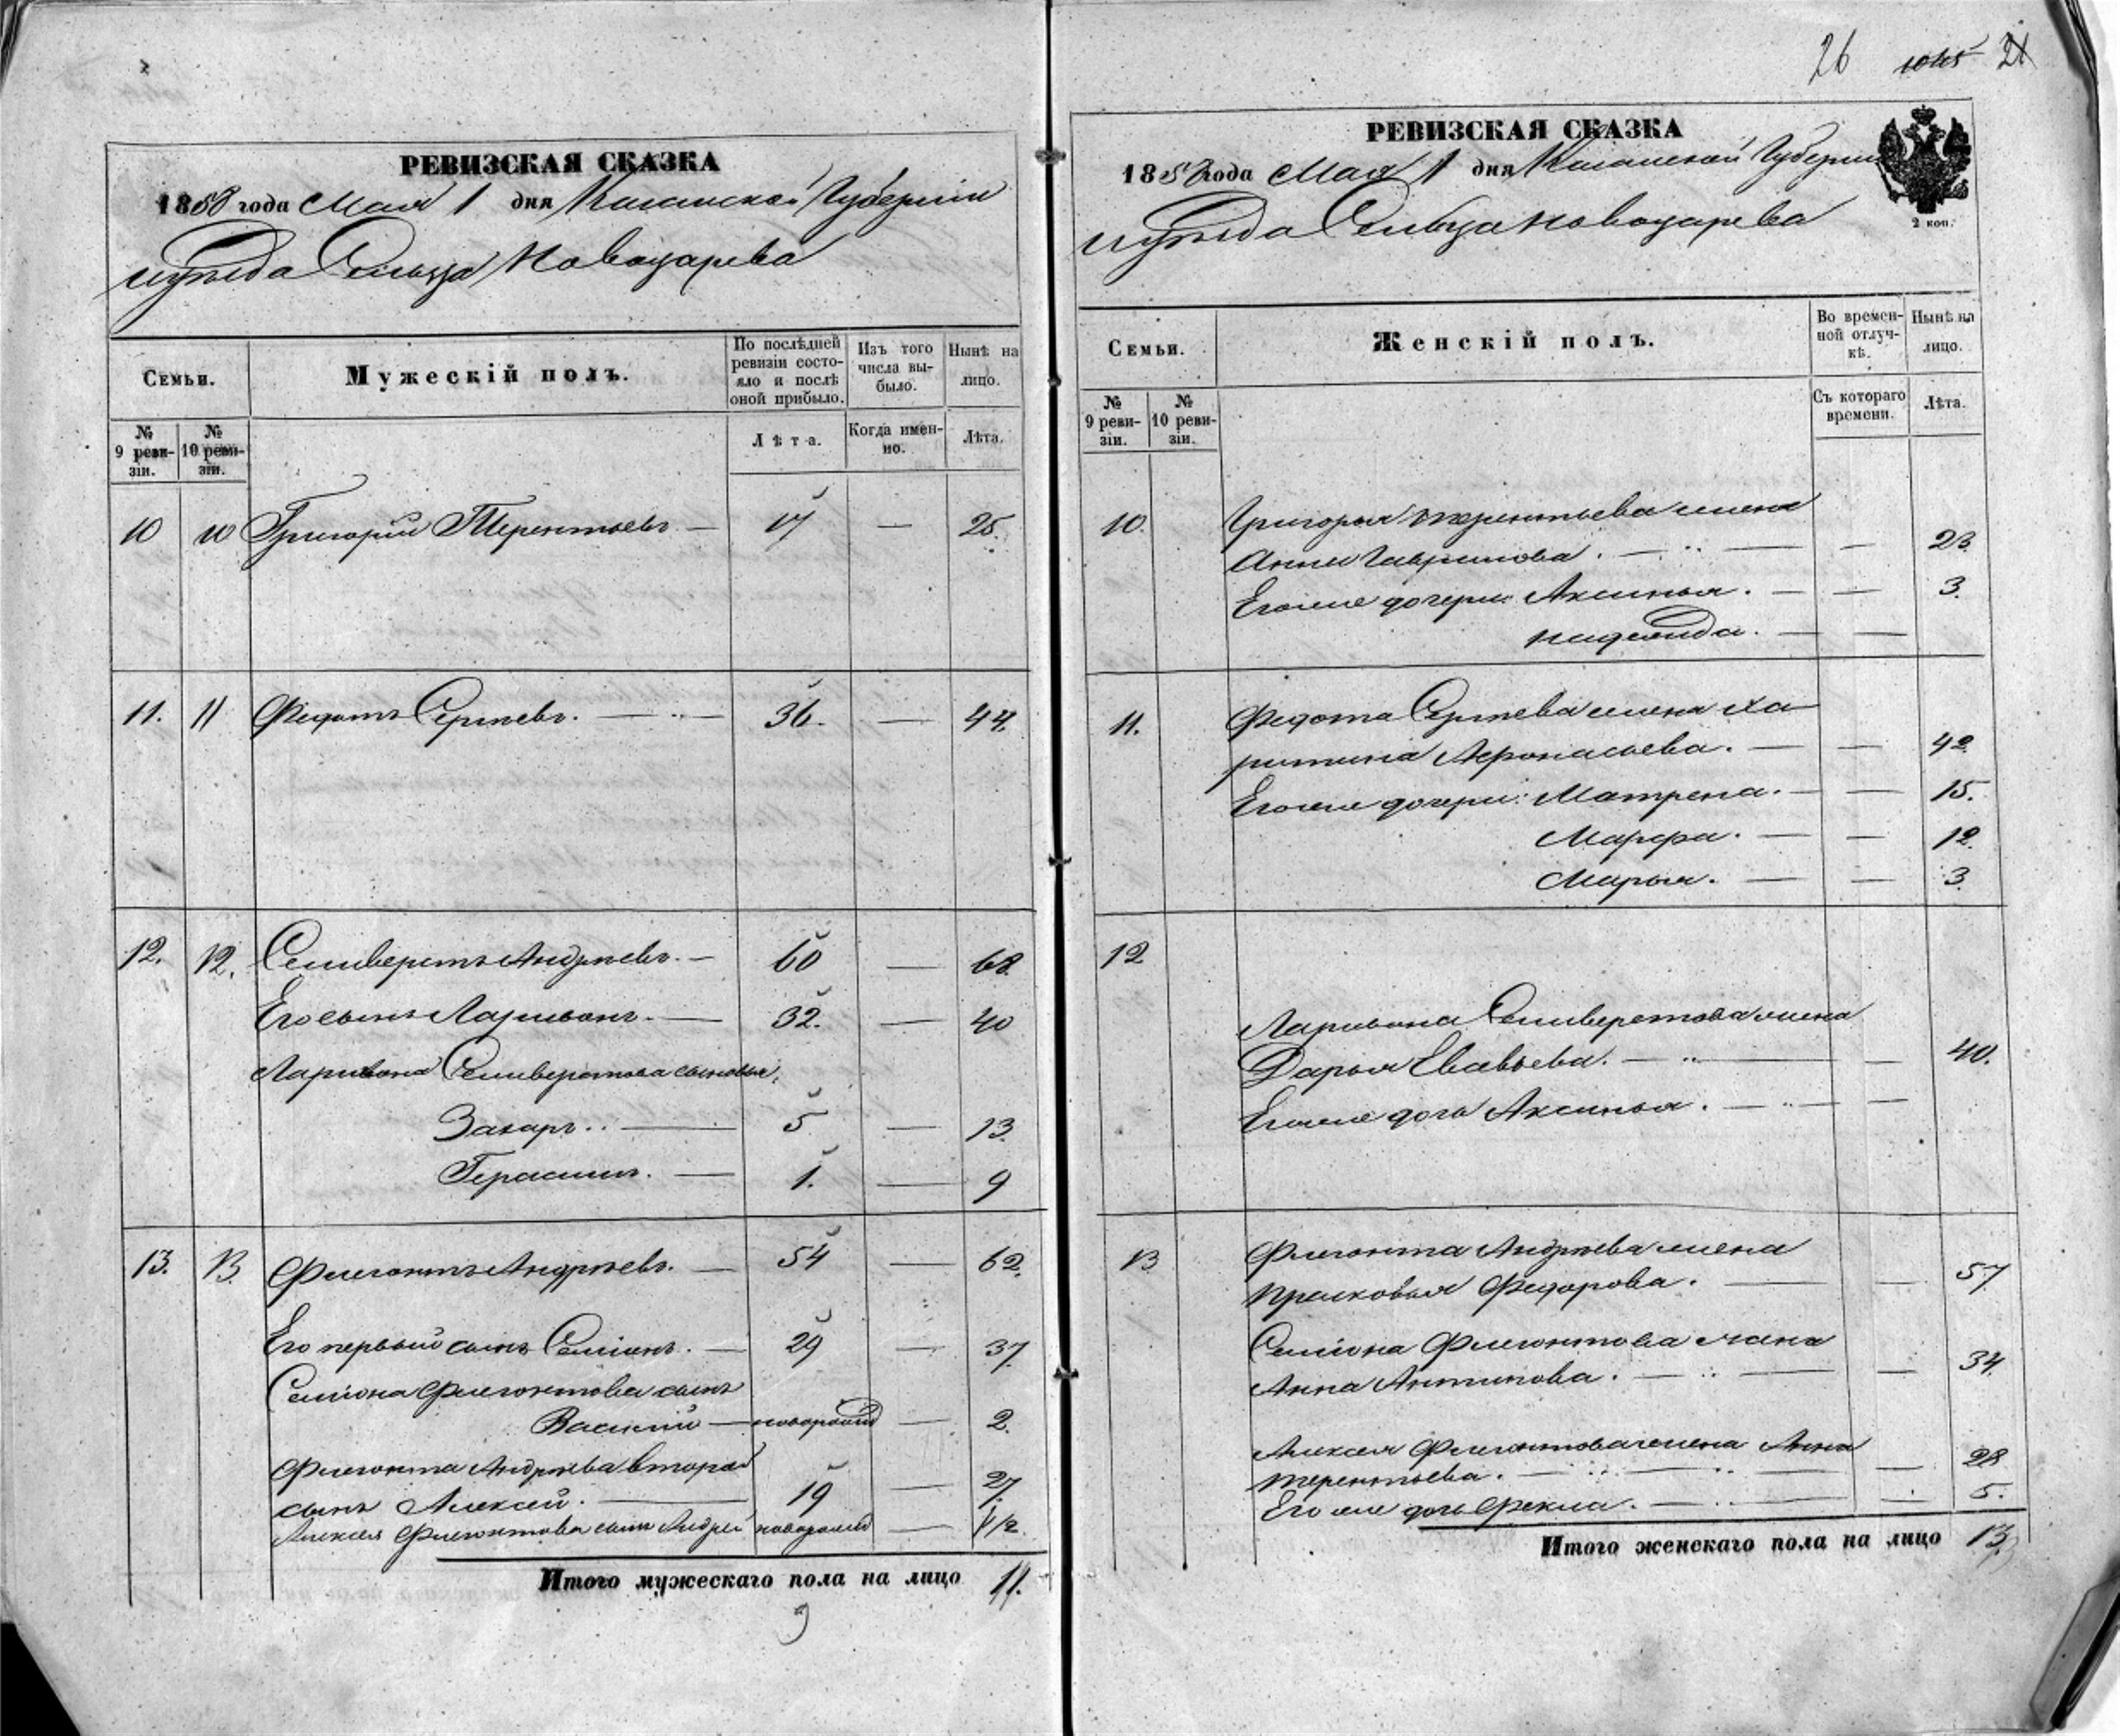 РЕВИЗСКАЯ СКАЗКА
1858 года Мая 1 дня Казанской Губерніи
уѣзда Сельца Новоцарева
Семьи.
Мужескій полъ.
По послѣдней ревизіи состояло и послѣ оной прибыло.
Изъ того числа выбыло.
Нынѣ на лицо.
№ 9 ревизіи.
№ 10 ревизіи.
Лѣта.
Когда именно.
Лѣта.
10 10 Григорій Терентьевъ — 17 — 25.
11. 11 Федотъ Сергѣевъ. — 36. — 44.
12. 12. Селиверстъ Андрѣевъ. — 60 — 68.
Его сынъ Ларивонъ. — 32. — 40
Ларивона Селиверстова сыновья,
Захаръ.. — 5 — 13.
Герасимъ. — 1. — 9
13. 13. Флегонтъ Андрѣевъ. — 54 — 62.
Его первый сынъ Семіонъ. — 29 — 37.
Семіона Флегонтова сынъ
Василій — новорожд — 2.
Флегонта Андрѣева второй
сынъ Алексей. — 19 — 27.
Алексея Флегонтова сынъ Андрей новорожд — 1/2
Итого мужескаго пола на лицо 11.
9
26 21
РЕВИЗСКАЯ СКАЗКА
1858 года Мая 1 дня Казанской Губерніи
уѣзда Сельца Новоцарева
2 коп.
Семьи.
Женскій полъ.
Во временной отлучкѣ.
Нынѣ на лицо.
№ 9 ревизіи.
№ 10 ревизіи.
Съ котораго времени.
Лѣта.
10. Григорья Терентьева жена
Анна Гаврилова. — — 23.
Его же дочери: Аксинья. — — 3.
Надежда. — —
11. Федота Сергѣева жена Ха
ритина Афонасьева. — — 42.
Его же дочери: Матрена. — — 15.
Марфа. — — 12.
Марья. — — 3.
12
Ларивона Селиверстова жена
Дарья Евсѣева. — — 40.
Его же дочь Аксинья. — —
13 Флегонта Андрѣева жена
Прасковья Федорова. — — 57.
Семіона Флегонтова жена
Анна Антипова. — — 34.
Алексея Флегонтова жена Анна
Терентьева. — — 28
Его же дочь Фекла. — — 5.
Итого женскаго пола на лицо 13.